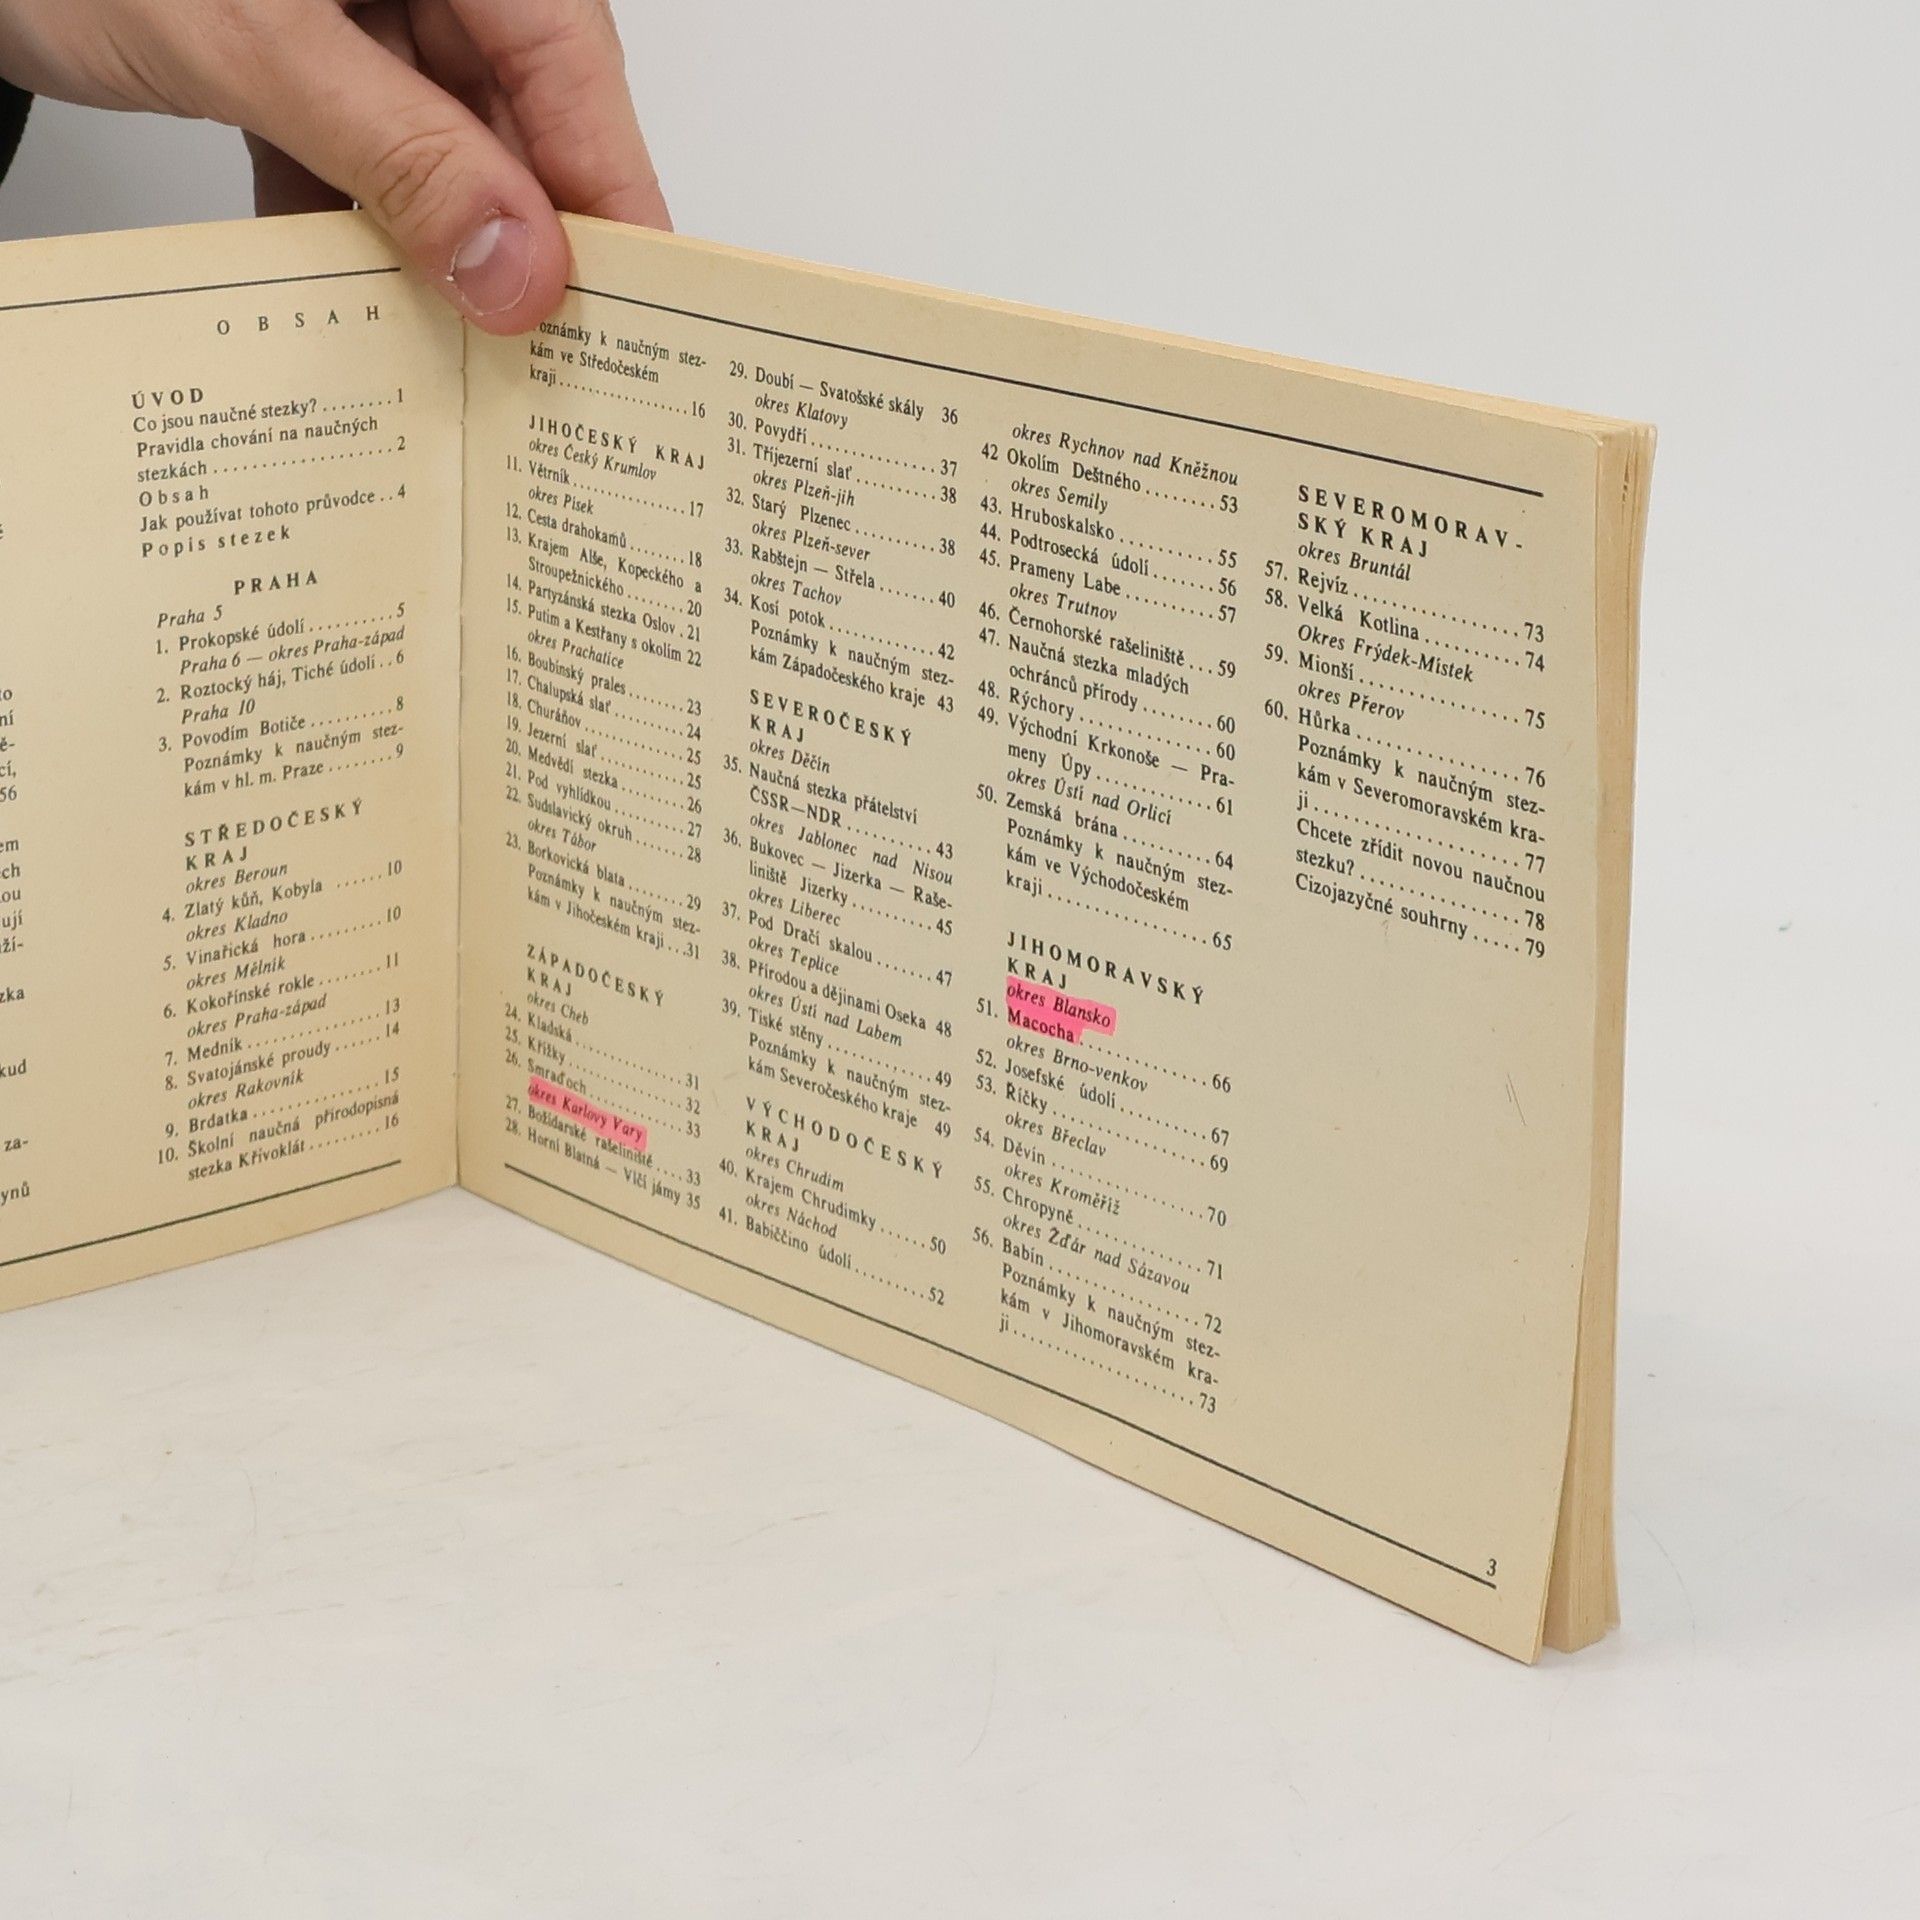 to
ní
ě-
cí,
56
em
ch
ou
ují
ží-
zka
kud
za-
ynů
OBSAH
ÚVOD
Co jsou naučné stezky? ........ 1
Pravidla chování na naučných
stezkách .................... 2
Obsah
Jak používat tohoto průvodce .. 4
Popis stezek
PRAHA
Praha 5
1. Prokopské údolí .......... 5
Praha 6 — okres Praha-západ
2. Roztocký háj, Tiché údolí .. 6
Praha 10
3. Povodím Botiče .......... 8
Poznámky k naučným stez-
kám v hl. m. Praze ........ 9
STŘEDOČESKÝ
KRAJ
okres Beroun
4. Zlatý kůň, Kobyla ...... 10
okres Kladno
5. Vinařická hora .......... 10
okres Mělník
6. Kokořínské rokle ........ 11
okres Praha-západ
7. Medník ................ 13
8. Svatojánské proudy ...... 14
okres Rakovník
9. Brdatka ................ 15
10. Školní naučná přírodopisná
stezka Křivoklát .......... 16
oznámky k naučným stez-
kám ve Středočeském
kraji .................... 16
JIHOČESKÝ KRAJ
okres Český Krumlov
11. Větrník ................ 17
okres Písek
12. Cesta drahokamů ........ 18
13. Krajem Alše, Kopeckého a
Stroupežnického .......... 20
14. Partyzánská stezka Oslov . 21
15. Putim a Kestřany s okolím 22
okres Prachatice
16. Boubínský prales ........ 23
17. Chalupská slať .......... 24
18. Churáňov .............. 25
19. Jezerní slať ............ 25
20. Medvědí stezka .......... 26
21. Pod vyhlídkou .......... 27
22. Sudslavický okruh ...... 28
okres Tábor
23. Borkovická blata ........ 29
Poznámky k naučným stez-
kám v Jihočeském kraji ... 31
ZÁPADOČESKÝ
KRAJ
okres Cheb
24. Kladská ................ 31
25. Křížky ................ 32
26. Smraďoch .............. 33
okres Karlovy Vary
27. Božídarské rašeliniště .... 33
28. Horní Blatná — Vlčí jámy 35
29. Doubí — Svatošské skály 36
okres Klatovy
30. Povydří ................ 37
31. Tříjezerní slať .......... 38
okres Plzeň-jih
32. Starý Plzenec .......... 38
okres Plzeň-sever
33. Rabštejn — Střela ........ 40
okres Tachov
34. Kosí potok .............. 42
Poznámky k naučným stez-
kám Západočeského kraje 43
SEVEROČESKÝ
KRAJ
okres Děčín
35. Naučná stezka přátelství
ČSSR—NDR ............ 43
okres Jablonec nad Nisou
36. Bukovec — Jizerka — Raše-
liniště Jizerky .......... 45
okres Liberec
37. Pod Dračí skalou ........ 47
okres Teplice
38. Přírodou a dějinami Oseka 48
okres Ústí nad Labem
39. Tiské stěny ............ 49
Poznámky k naučným stez-
kám Severočeského kraje 49
VÝCHODOČESKÝ
KRAJ
okres Chrudim
40. Krajem Chrudimky ...... 50
okres Náchod
41. Babiččino údolí .......... 52
okres Rychnov nad Kněžnou
42 Okolím Deštného ........ 53
okres Semily
43. Hruboskalsko .......... 55
44. Podtrosecká údolí ....... 56
45. Prameny Labe .......... 57
okres Trutnov
46. Černohorské rašeliniště ... 59
47. Naučná stezka mladých
ochránců přírody ........ 60
48. Rýchory ................ 60
49. Východní Krkonoše — Pra-
meny Úpy .............. 61
okres Ústí nad Orlicí
50. Zemská brána .......... 64
Poznámky k naučným stez-
kám ve Východočeském
kraji .................... 65
JIHOMORAVSKÝ
KRAJ
okres Blansko
51. Macocha .............. 66
okres Brno-venkov
52. Josefské údolí .......... 67
53. Říčky .................. 69
okres Břeclav
54. Děvín .................. 70
okres Kroměříž
55. Chropyně .............. 71
okres Žďár nad Sázavou
56. Babín .................. 72
Poznámky k naučným stez-
kám v Jihomoravském kra-
ji ...................... 73
SEVEROMORAV-
SKÝ KRAJ
okres Bruntál
57. Rejvíz .................. 73
58. Velká Kotlina .......... 74
Okres Frýdek-Místek
59. Mionší ................ 75
okres Přerov
60. Hůrka .................. 76
Poznámky k naučným stez-
kám v Severomoravském kra-
ji ...................... 77
Chcete zřídit novou naučnou
stezku? .................. 78
Cizojazyčné souhrny ..... 79
3